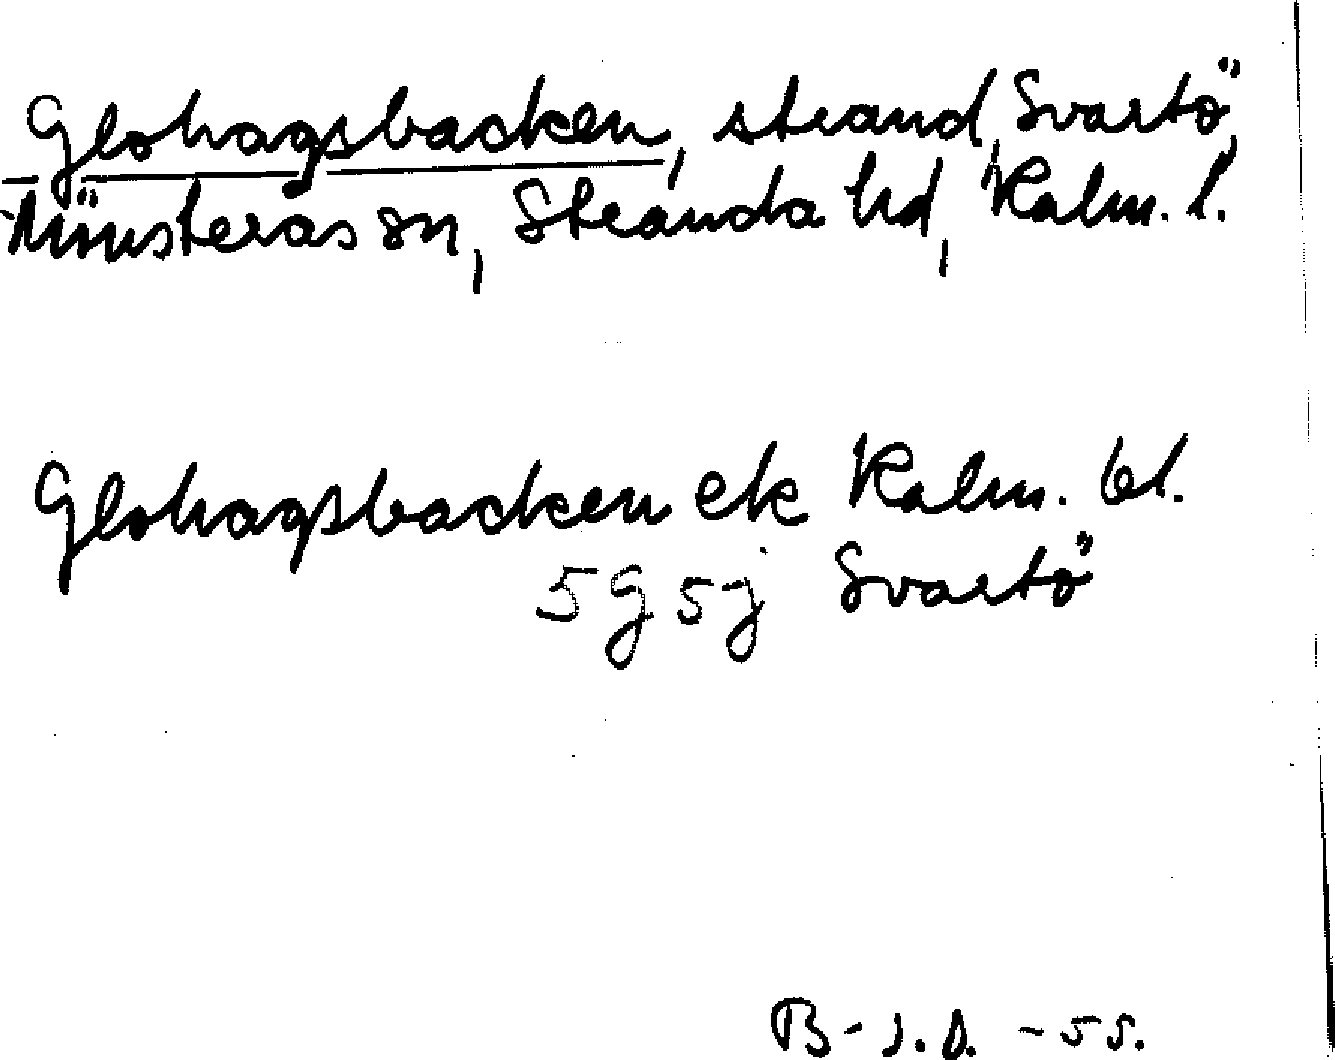 Glohagsbacken, strand, Svartö,
Mönsterås sn, Stranda hd, Kalm. l.
Glohagsbacken ek Kalm. bl.
5g 5j Svartö
B-J.D. -55.